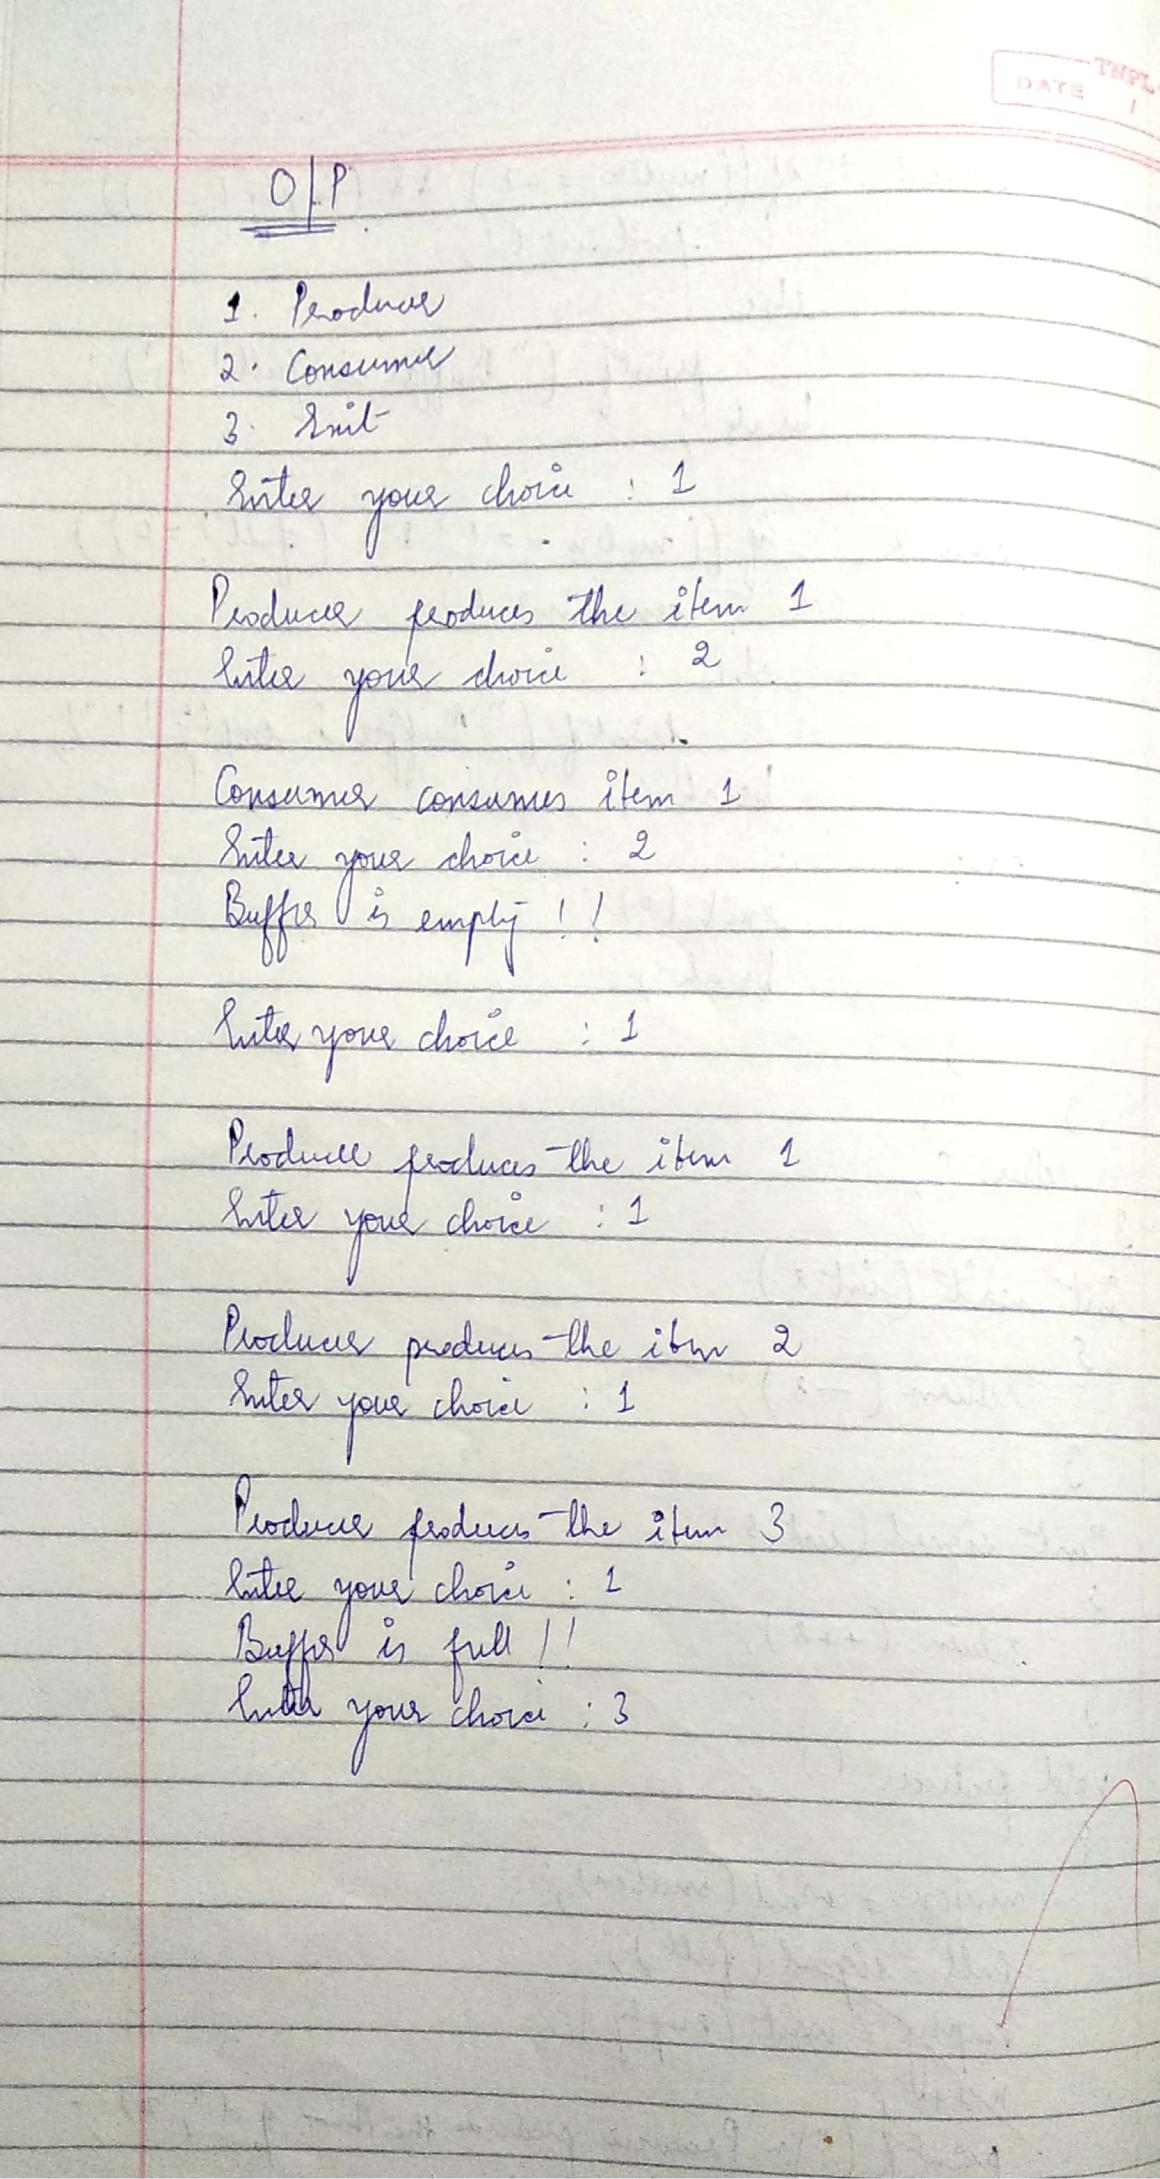 TNPL
DATE
O/P
1. Producer
2. Consumer
3. Exit
Enter your choice : 1
Producer produces the item 1
Enter your choice : 2
Consumer consumes item 1
Enter your choice : 2
Buffer is empty !!
Enter your choice : 1
Producer produces the item 1
Enter your choice : 1
Producer produces the item 2
Enter your choice : 1
Producer produces the item 3
Enter your choice : 1
Buffer is full !!
Enter your choice : 3